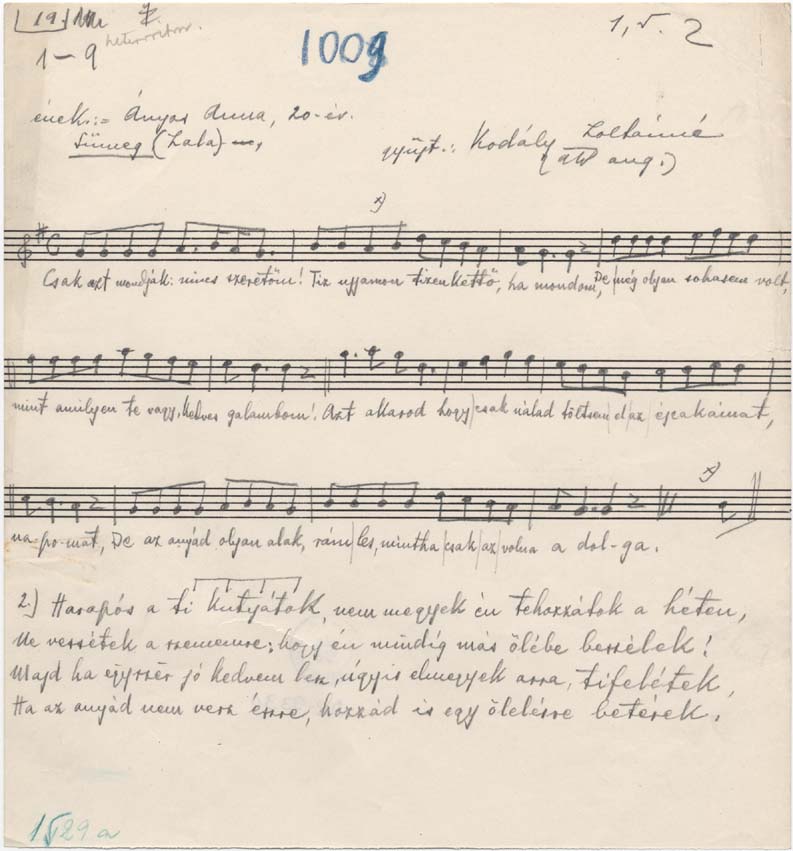 19.
1,5. 2
1-9
1009
ének:= Ányos Anna, 20-év.
Sümeg (Zala)
gyűjt.: Kodály Zoltánné
x)
Csak azt mondják: nincs szeretőm! Tíz ujjamon tizenkettő, ha mondom, De még olyan sohasem volt,
mint amilyen te vagy, kedves galambom! Azt akarod hogy csak nálad töltsem el az éjszakáimat,
x)
na-po-mat, De az anyád olyan alak, rám les, mintha csak az volna a dol-ga.
2.) Harapós a ti kutyátok, nem megyek én tehozzátok a héten,
Ne vessétek a szememre; hogy én mindíg más ölébe beszélek!
Majd ha egyszër jó kedvem lesz, úgyis elmegyek arra, tifelétek,
Ha az anyád nem vesz észre, hozzád is egy ölelésre betérek.
1529a